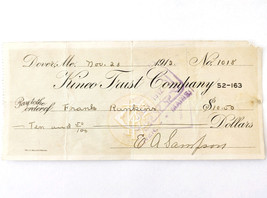 Dover, Me. Nov. 20 1912 No. 1018
Kineo Trust Company 52-163
Pay to the order of Frank Rankins $10.50
Ten and 50/100 Dollars
E A Sampson